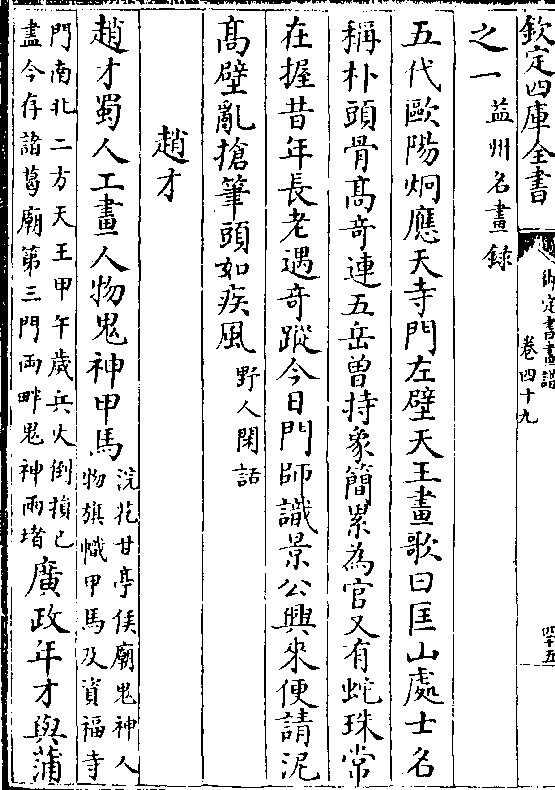 欽定四庫全書
御定書畫譜
卷四十九
四十五
之一益州名畫錄
五代歐陽炯應天寺門左壁天王畫歌曰匡山處士名
稱朴頭骨高竒連五岳曾持象簡累為官又有蛇珠常
在握昔年長老遇竒蹤今日門師識景公興來便請泥
高壁亂搶筆頭如疾風野人閑話
趙才
趙才蜀人工畫人物鬼神甲馬浣花甘亭侯廟鬼神人
物旗幟甲馬及資福寺
門南北二方天王甲午歲兵火倒損已
盡今存諸葛廟第三門両畔鬼神兩堵廣政年才與蒲